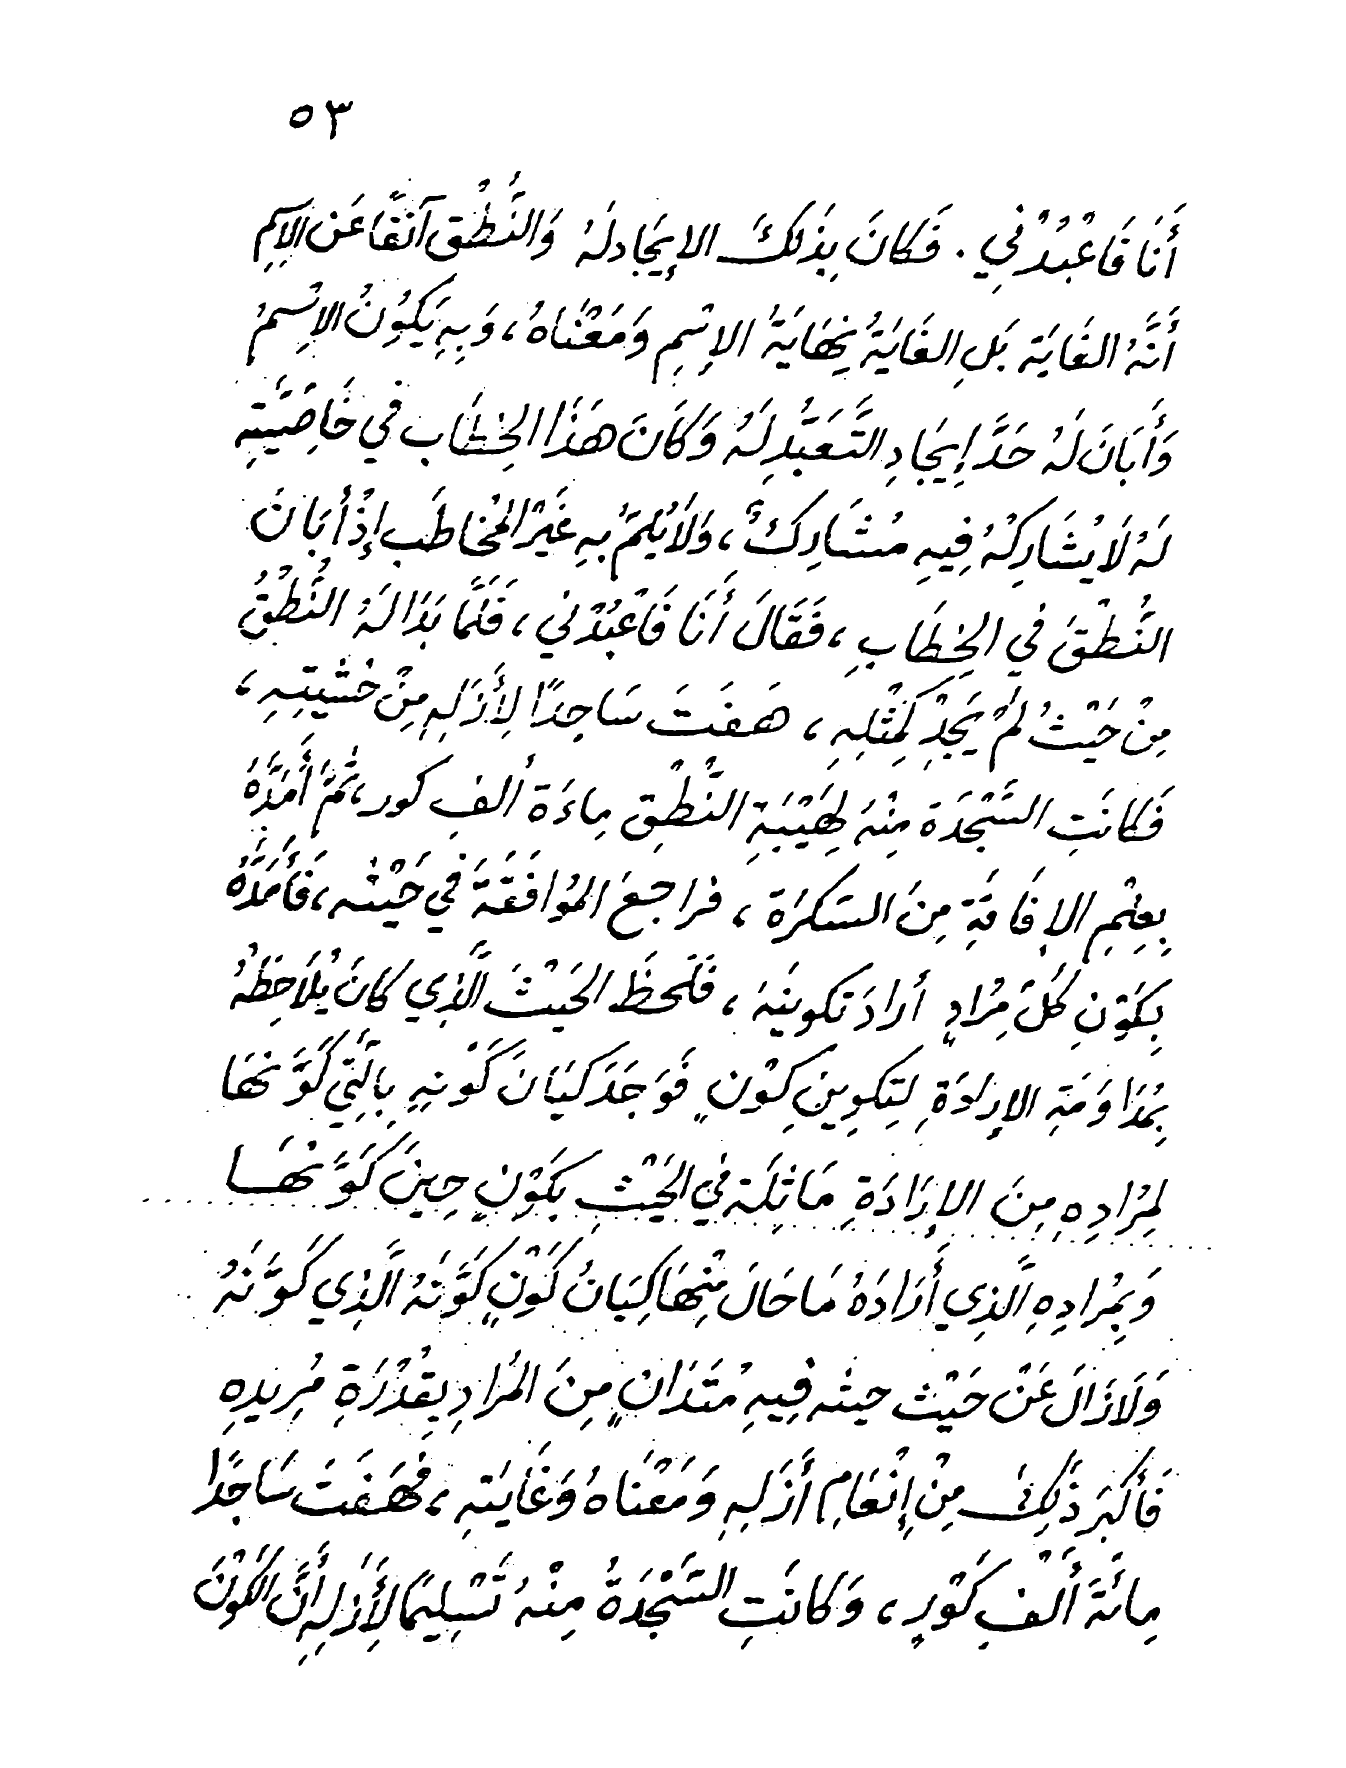 ٥٣
أَنَا فَاعْبُدْنِي . فَكَانَ بِذَلِكَ الإِيجَادِ لَهُ وَالنُّطْقِ آنَفًا عَن الإِسم
أَنَّهُ الغَايَة بَلِ الغَايَةُ نِهَايَةُ الإِسْمِ وَمَعْنَاهُ ، وَبِهِ يَكُونُ الإِسْمُ
وَأَبَانَ لَهُ حَدَّ إِيجَادِ التَّعَبُّدِ لَهُ وَكَانَ هَذَا الخِطَاب فِي خَاصِّيَّتِهِ
لَهُ لَا يُشَارِكْهُ فِيهِ مُشَارِكٌ ، وَلَا يُلِمُّ بِهِ غَيْرُ المُخَاطَب إِذْ أَبَانَ
النُّطْقَ فِي الخِطَابِ ، فَقَالَ أَنَا فَاعْبُدْنِي ، فَلَمَّا بَدَا لَهُ النُّطْقُ
مِنْ حَيْثُ لَمْ يَجِدْ كَمِثْلِهِ ، هَفَتَ سَاجِدًا لِأَزَلِهِ مِنْ خَشْيَتِهِ ،
فَكَانَتِ السَّجْدَة مِنْهُ لِهَيْبَةِ النُّطْقِ مِاءَة أَلفِ كَور ، ثُمَّ أَمَدَّهُ
بِعِلْمِ الإِفَاقَةِ مِنَ السَكرَة ، فراجعَ المُوَافَقَةَ فِي حَيْثه ، فَأَمَدَّهُ
بِكَوْنِ كُلِّ مِرُادٍ أرادَ تكوينَهُ ، فَلَحظَ الحَيْثَ الَّذِي كانَ يُلَاحِظهُ
بِمُدَاوَمَةِ الإِرادَةِ لِتَكوِينِ كَوْنٍ فَوَجَدَ كَيَانَ كَوْنِهِ بِالَّتِي كَوَّنَهَا
لِمُرَادِهِ مِنَ الإِرَادَةِ مَاثِلَة فِي الحَيْثِ بِكَوْنٍ حِينَ كَوَّنَهَا
وَبِمُرادِهِ الَّذِي أَرَادَهُ مَا حَالَ مِنْهَا كِيَانُ كَوْنٍ كَوَّنَهُ الَّذِي كَوَّنَهُ
وَلَا زَالَ عَنْ حَيْث حيثه فِيهِ مُتَدَانٍ مِنَ المُرَادِ بِقُدْرَةِ مُرِيدِهِ
فَأَكبَرَ ذَلِكَ مِنْ إِنْعَامِ أَزَلِهِ وَمَعْنَاهُ وَغَايَتِهِ ، فَهَفَتَ سَاجِدًا
مِائَةَ أَلْفِ كَوْرٍ ، وَكَانَتِ السَّجْدَةُ مِنْهُ تَسْلِيمًا لِأَزَلِهِ أَنَّ الكَوْنَ